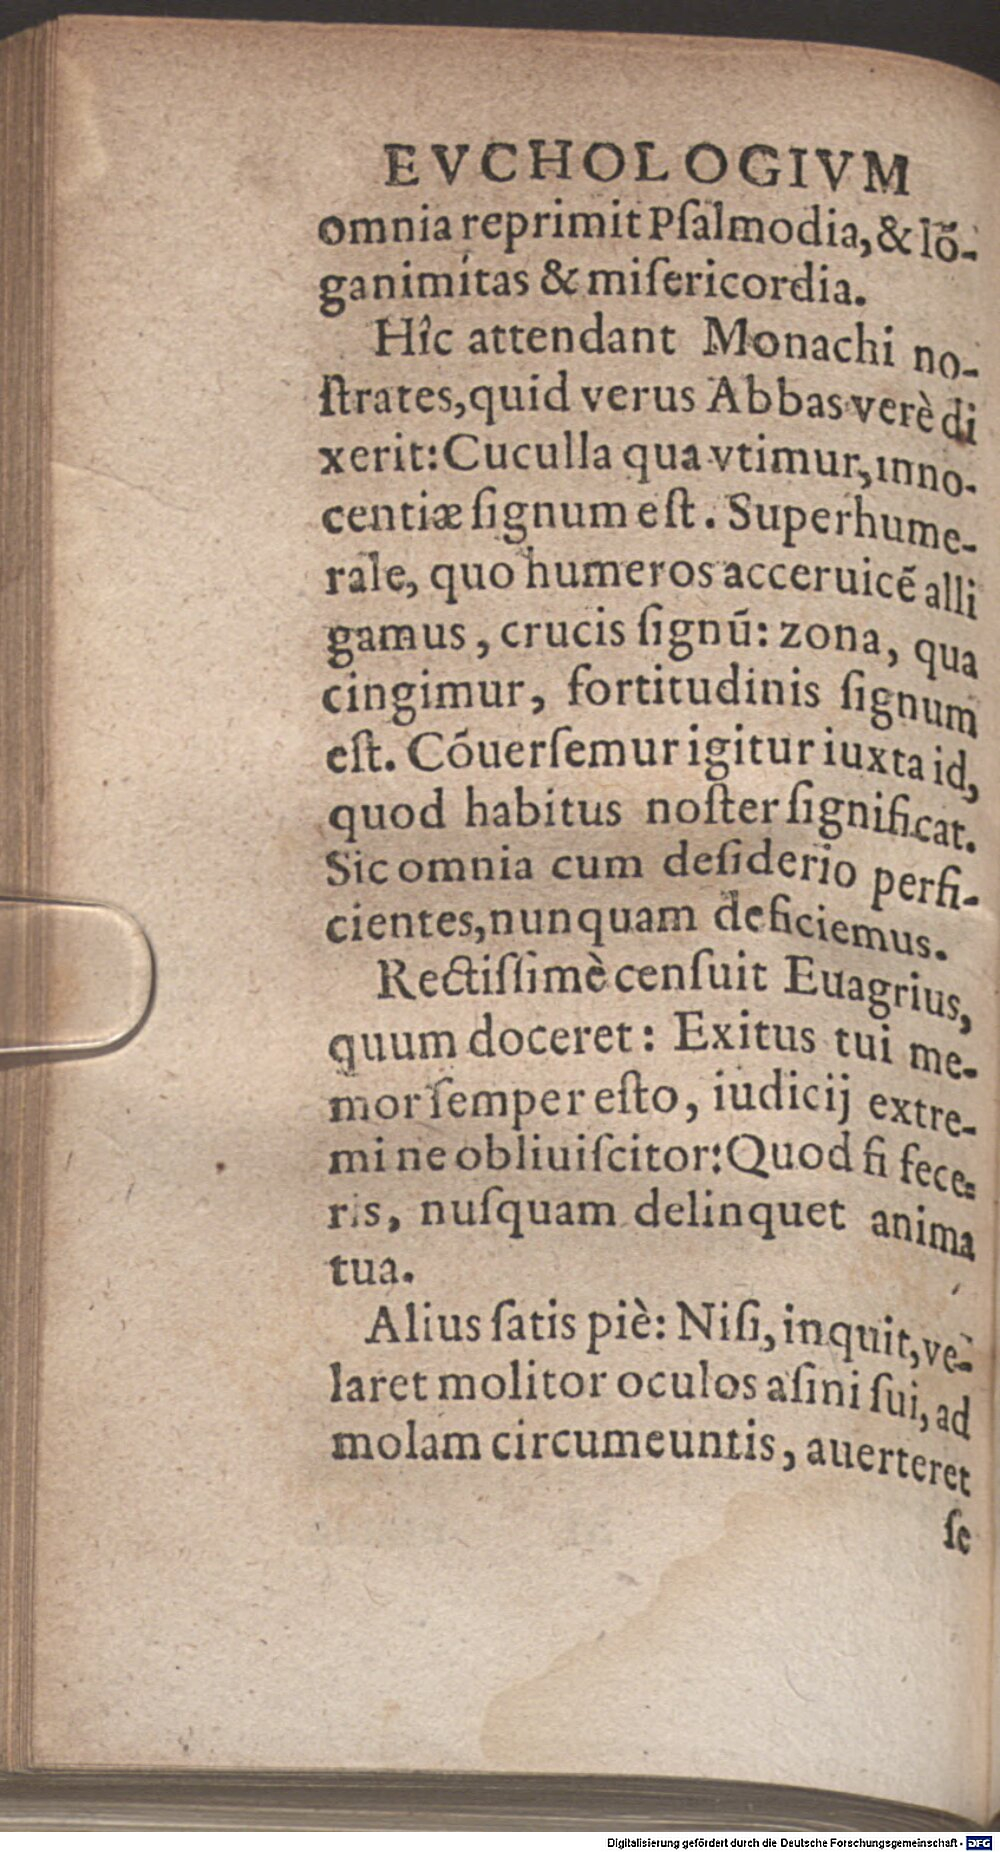 EVCHOLOGIVM
omnia reprimit Pſalmodia, & lō-
ganimitas & miſericordia.
Hîc attendant Monachi no-
ſtrates, quid verus Abbas verè di
xerit: Cuculla qua vtimur, inno-
centiæ ſignum eſt. Superhume-
rale, quo humeros acceruicē alli
gamus, crucis ſignū: zona, qua
cingimur, fortitudinis ſignum
eſt. Cōuerſemur igitur iuxta id,
quod habitus noſter ſignificat.
Sic omnia cum deſiderio perfi-
cientes, nunquam deficiemus.
Rectiſſimè cenſuit Euagrius,
quum doceret: Exitus tui me-
mor ſemper eſto, iudicij extre-
mi ne obliuiſcitor: Quod ſi fece-
ris, nuſquam delinquet anima
tua.
Alius ſatis piè: Niſi, inquit, ve-
laret molitor oculos aſini ſui, ad
molam circumeuntis, auerteret
ſe
Digitalisierung gefördert durch die Deutsche Forschungsgemeinschaft - DFG